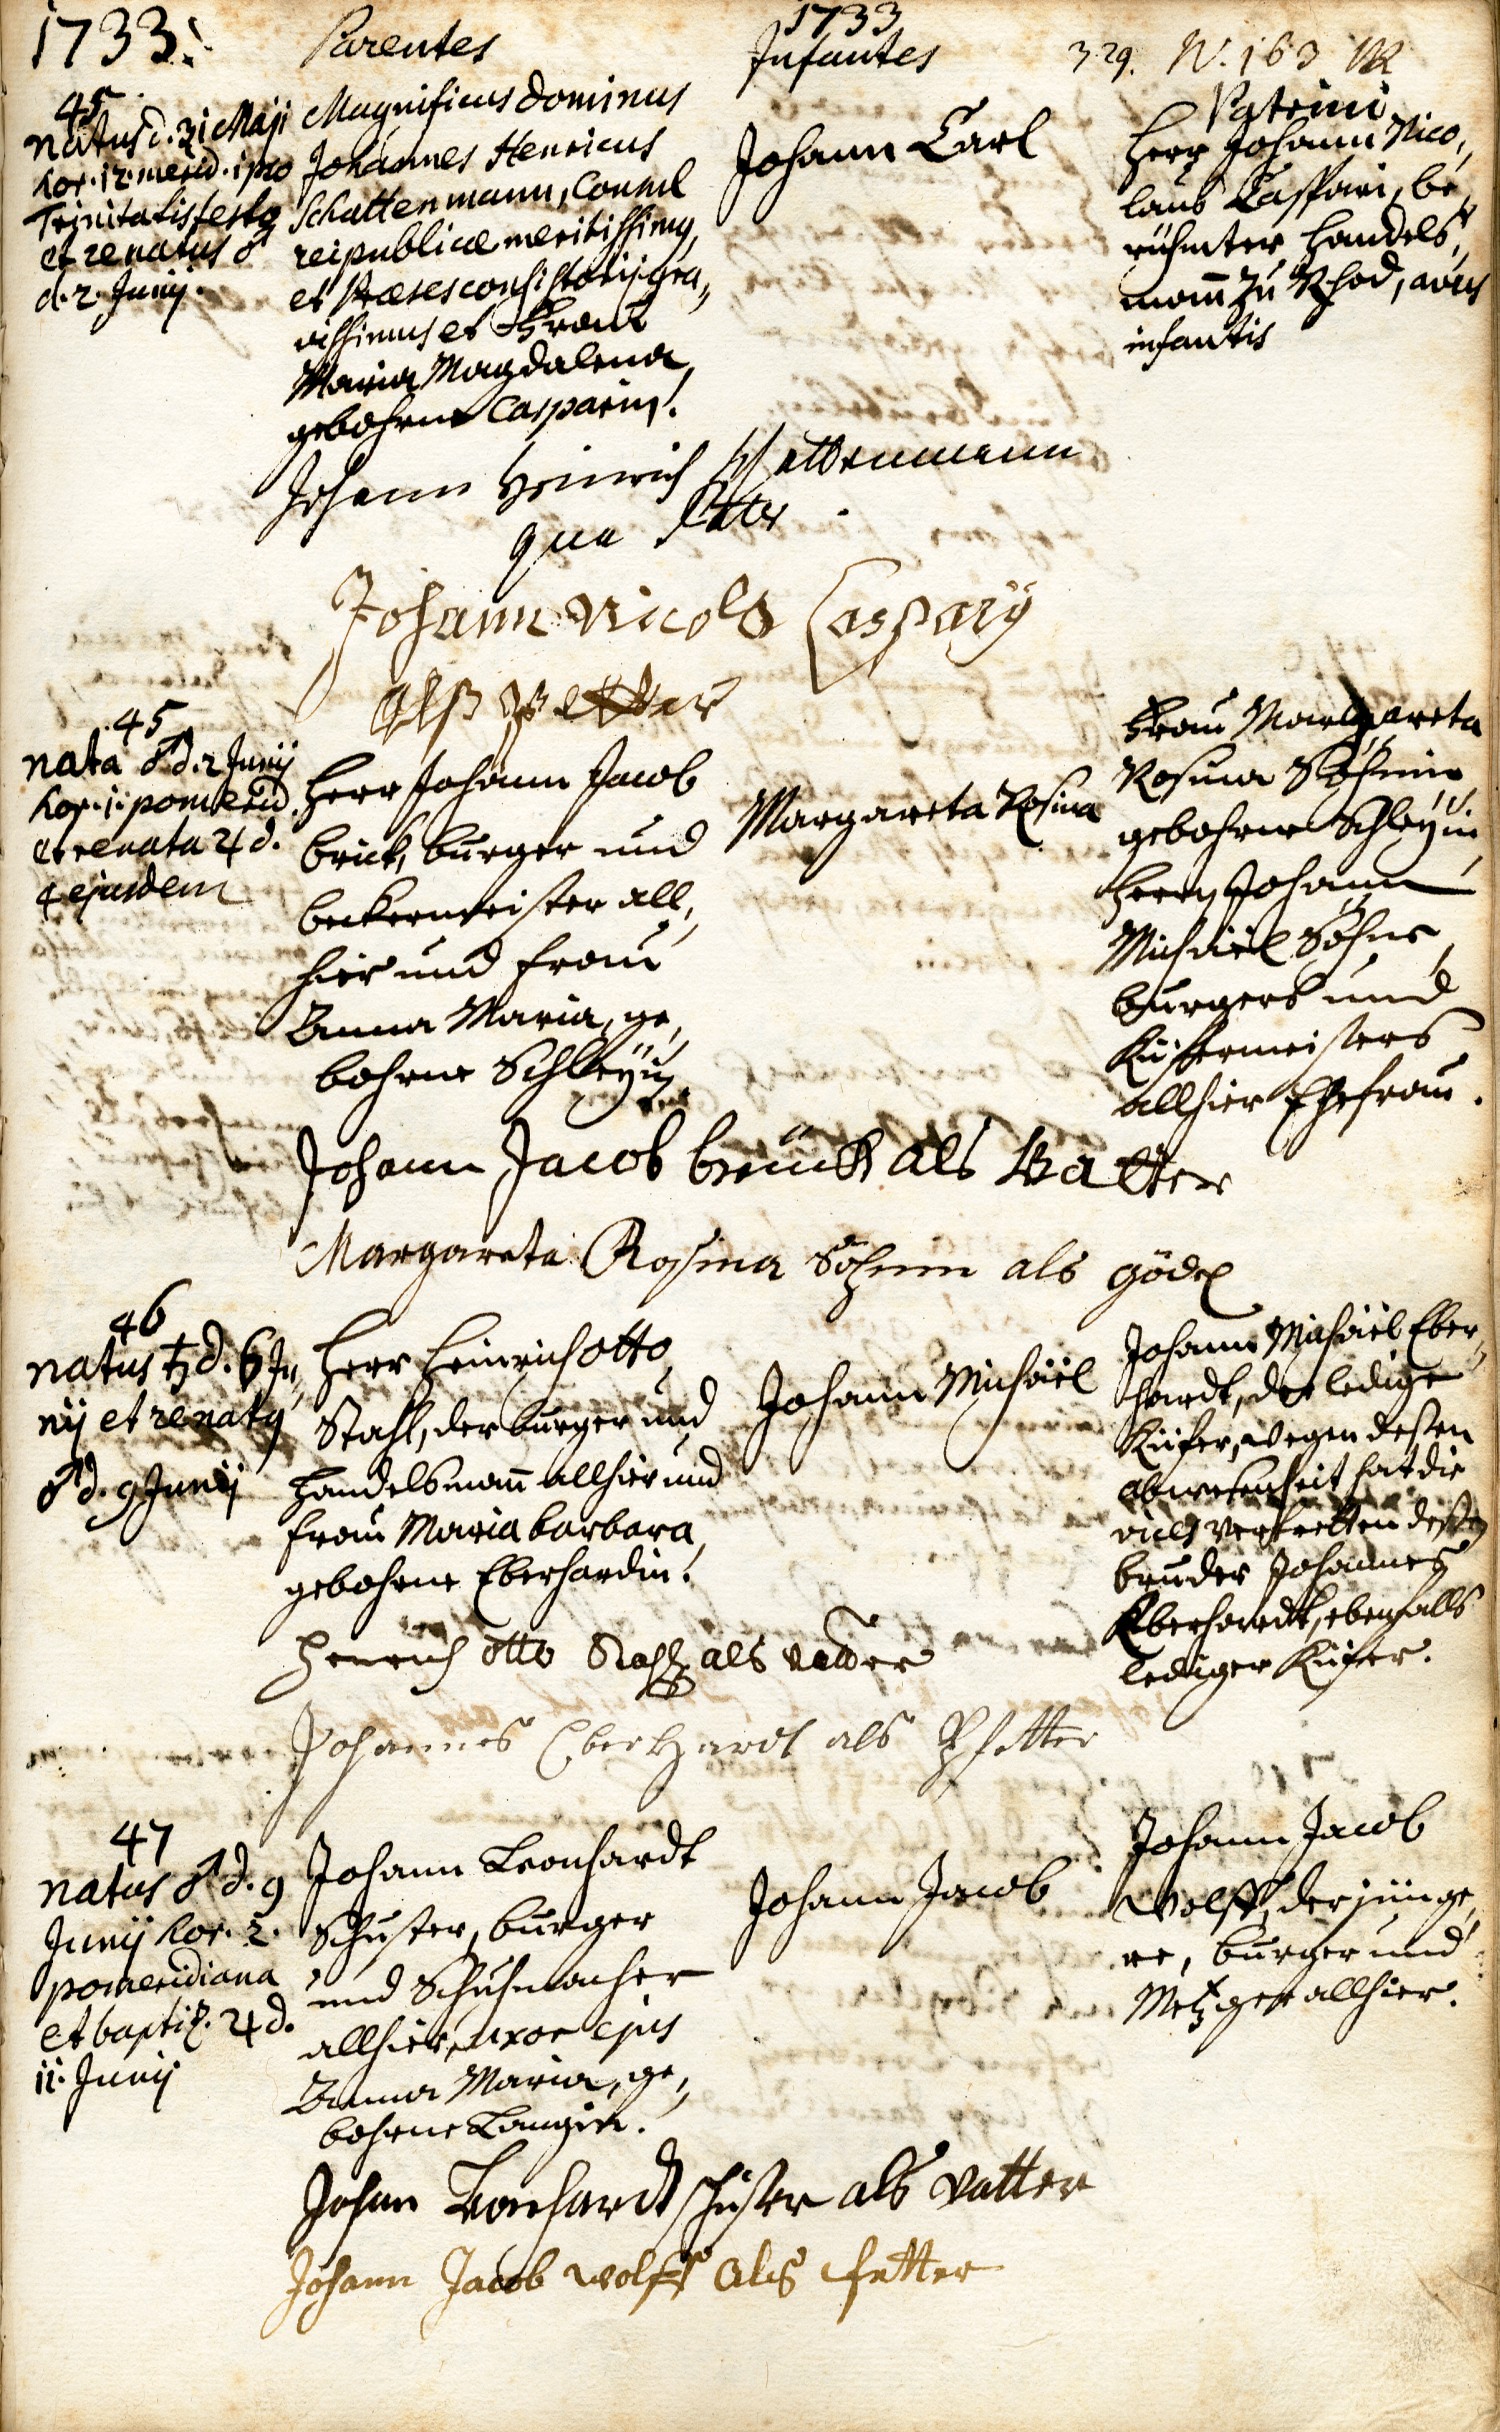 1733.
Parentes
1733
Infantes
3.29. N. 163
Patrini
45
natus d. 31 Maji
hor. 12. merid. ipso
Trinitatis festo
et renatus ♂
d. 2. Junij.
Magnificus Dominus
Johannes Henricus
Schattenmann, Consul
reipublicæ meritissimg,
et Præses consistorij gra,,
vissimus et Frau
Maria Magdalena,
gebohrne Casparin.
Johann Carl
Herr Johann Nico,,
laus Caspari, be,
rühmter Handels,,
mañ zu Rhod, avus
infantis
Johann Heinrich Schattenmann
qua Pater.
Johann Nicola Caspary
Alß Petter
45
nata ♂ d. 2 Junij
hor. 11 pomerid.
et renata ♃ d.
4 ejusdem
Herr Johann Jacob
Brück, burger und
beckermeister all,,
hier und Frau
Anna Maria, ge,,
bohrne Schleÿin.
Margareta Rosina
Frau Margareta
Rosina Söhnin
gebohrne Schleÿin,
Herrn Johann
Michäel Söhne,
burgers und
Küfermeisters
allhier Ehefrau.
Johann Jacob brück als Vatter
Margareta Rosina Söhnin als gödel
46
natus ♄ d. 6 Ju,,
nij et renatg
♂ d. 9 Junij
Herr Heinrich Otto
Stahl, der burger und
Handelsmañ allhier und
Frau Maria barbara,
gebohrne Eberhardin.
Johann Michäel
Johann Michäel Eber,,
hardt, der ledige
Küfer, wegen deßen
abwesenheit hat die
vices vertretten deßen
bruder Johannes
Eberhardt, ebenfalls
lediger Küfer.
Henrich Otto Stahl als vatter
Johannes Eberhardt als Pfetter
47
natus ♂ d. 9
Junij hor. 2.
pomeridiana
et baptiz. ♃ d.
11. Junij
Johann Leonhardt
Schuster, burger
und Schuhmacher
allhier, uxor ejus
Anna Maria, ge,,
bohrne Langin.
Johann Jacob
Johann Jacob
Wolff, der jünge,,
re, burger und
Metzger allhier.
Johan Leonhardt schuster als vatter
Johann Jacob wolff als fetter